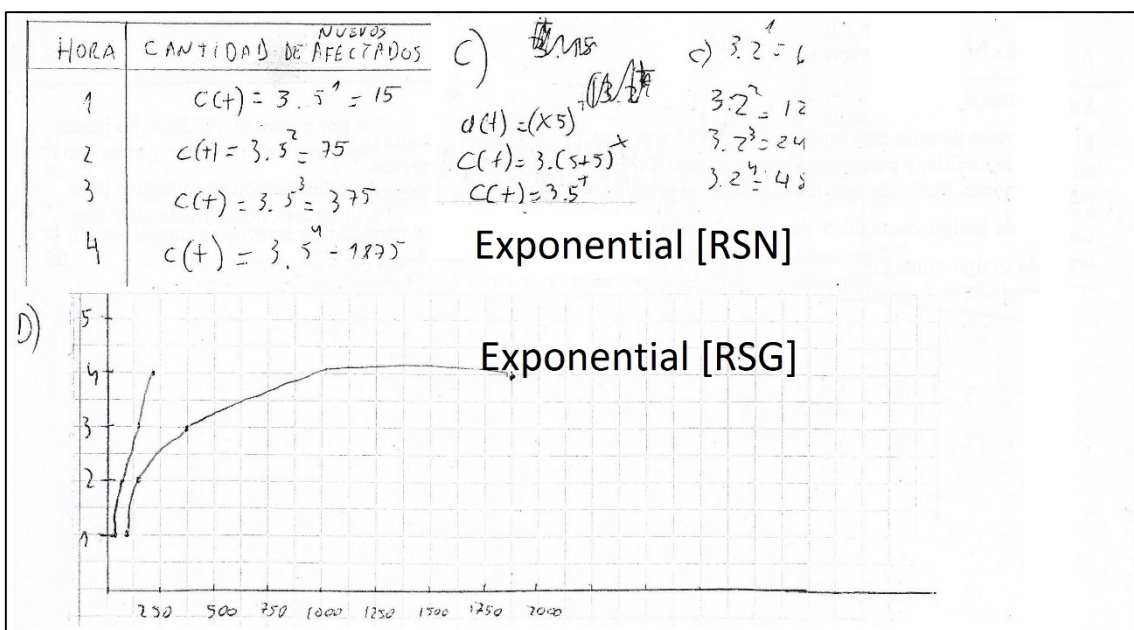 HORA CANTIDAD DE NUEVOS AFECTADOS
1 C(t) = 3 . 5¹ = 15
2 C(t) = 3. 5² = 75
3 C(t) = 3. 5³ = 375
4 C(t) = 3. 5⁴ = 1875
C)
d(t) = (x5)
C(t) = 3.(5+5)ˣ
C(t) = 3.5ᵗ
c) 3.2¹ = 6
3.2² = 12
3.2³ = 24
3.2⁴ = 48
Exponential [RSN]
D)
Exponential [RSG]
5
4
3
2
1
250 500 750 1000 1250 1500 1750 2000